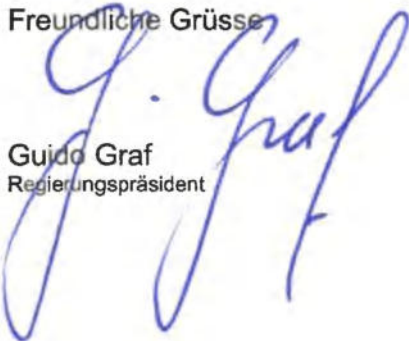 Freundliche Grüsse
G. Graf
Guido Graf
Regierungspräsident